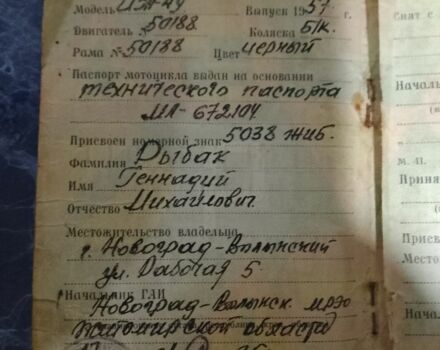 Модель ИЖ-49 Выпуск 1957 г.
Двигатель № 50188 Коляска Б/К.
Рама № 50188 Цвет черный
Паспорт мотоцикла выдан на основании
технического паспорта
МЛ-672104
Присвоен номерной знак 5038 ЖИБ.
Фамилия Рыбак
Имя Геннадий
Отчество Михайлович
Местожительство владельца
г. Новоград-Волынский
ул. Рабочая 5
Начальник ГАИ
Новоград-Волынск. мрэо
Житомирской области
Снят с
Началь
М. П.
Приня
Присв
Место
Начал